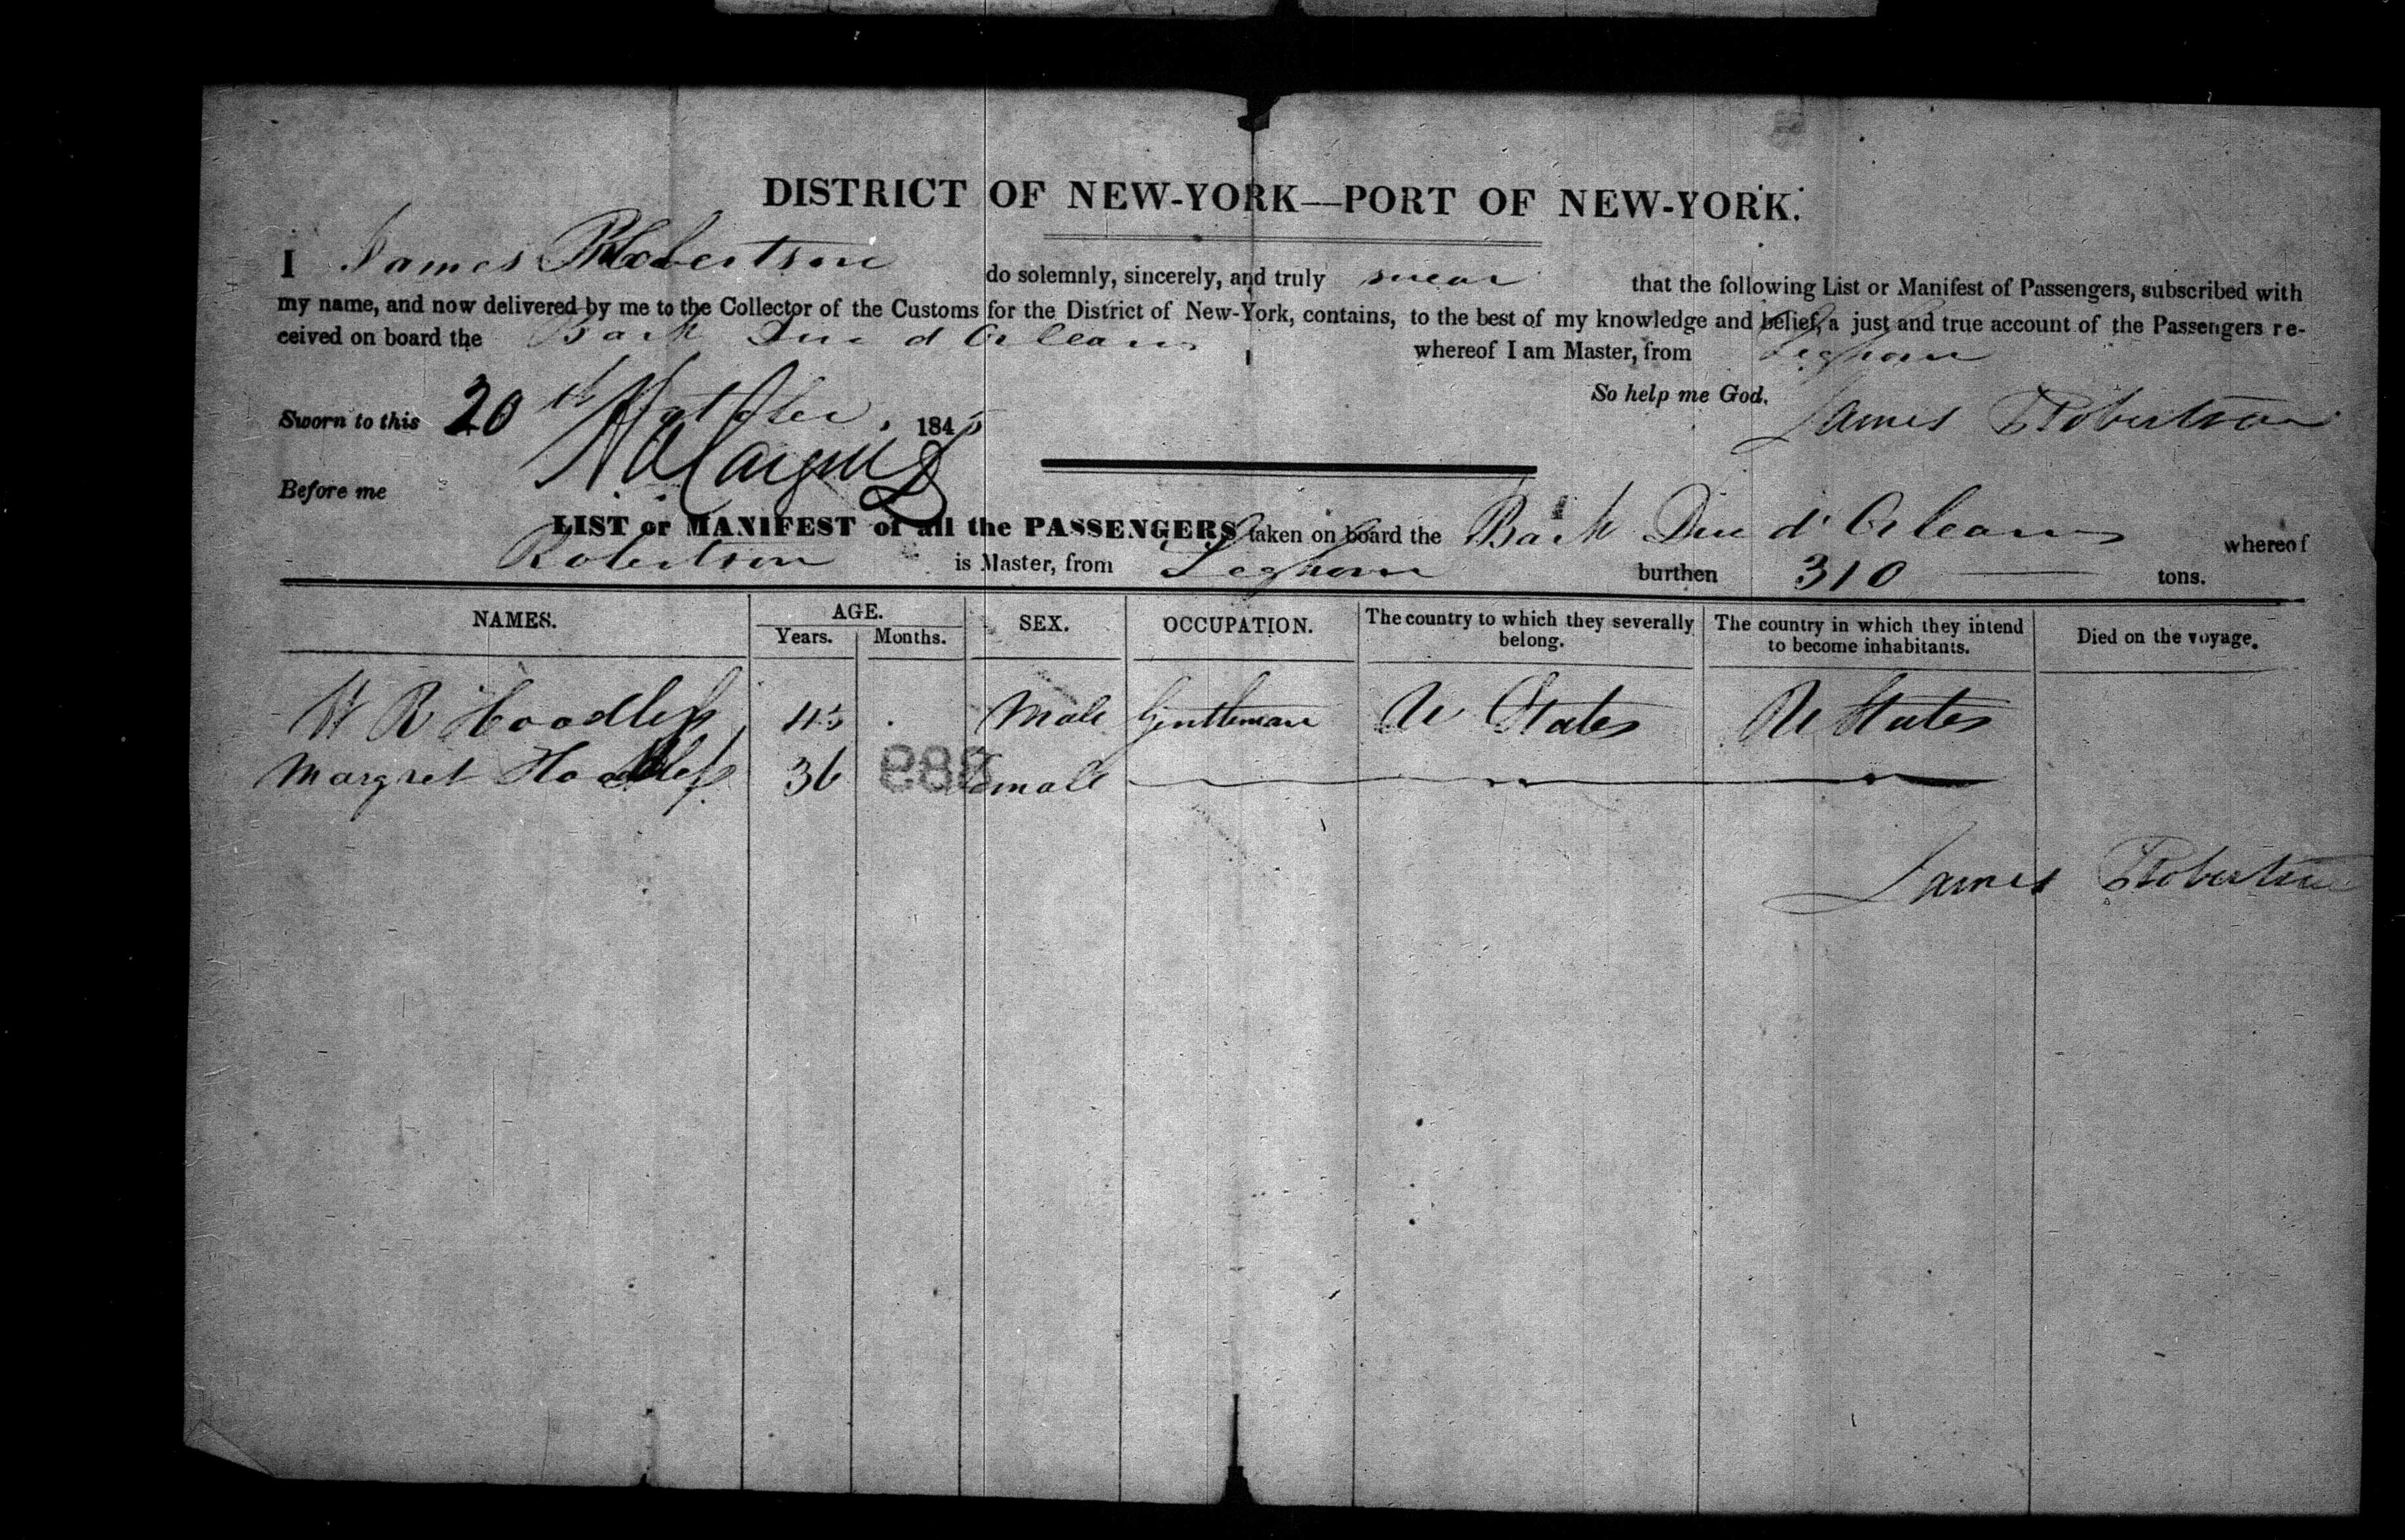 DISTRICT OF NEW-YORK—PORT OF NEW-YORK.
I James Robertson do solemnly, sincerely, and truly swear that the following List or Manifest of Passengers, subscribed with
my name, and now delivered by me to the Collector of the Customs for the District of New-York, contains, to the best of my knowledge and belief, a just and true account of the Passengers re-
ceived on board the Bark Duc d Orleans whereof I am Master, from Leghorn
So help me God.
Sworn to this 20th 184 James Robertson
Before me
LIST or MANIFEST of all the PASSENGERS taken on board the Bark Duc d'Orleans whereof
Robertson is Master, from Leghorn burthen 310 tons.
NAMES. AGE. Years. Months. SEX. OCCUPATION. The country to which they severally belong. The country in which they intend to become inhabitants. Died on the voyage.
W R Hoodless 45 Male Gentleman U States U States
Margret Hoodless 36 Female
888
James Robertson